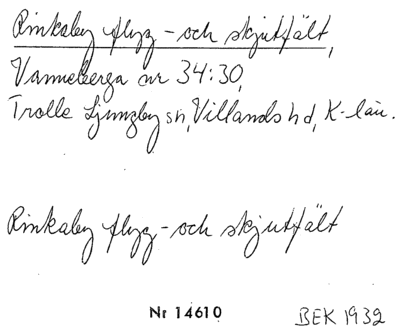 Rinkaby flyg- och skjutfält,
Vanneberga nr 34:30,
Trolle Ljungby sn, Villands hd, K-län.
Rinkaby flyg- och skjutfält
Nr 14610
BEK 1932